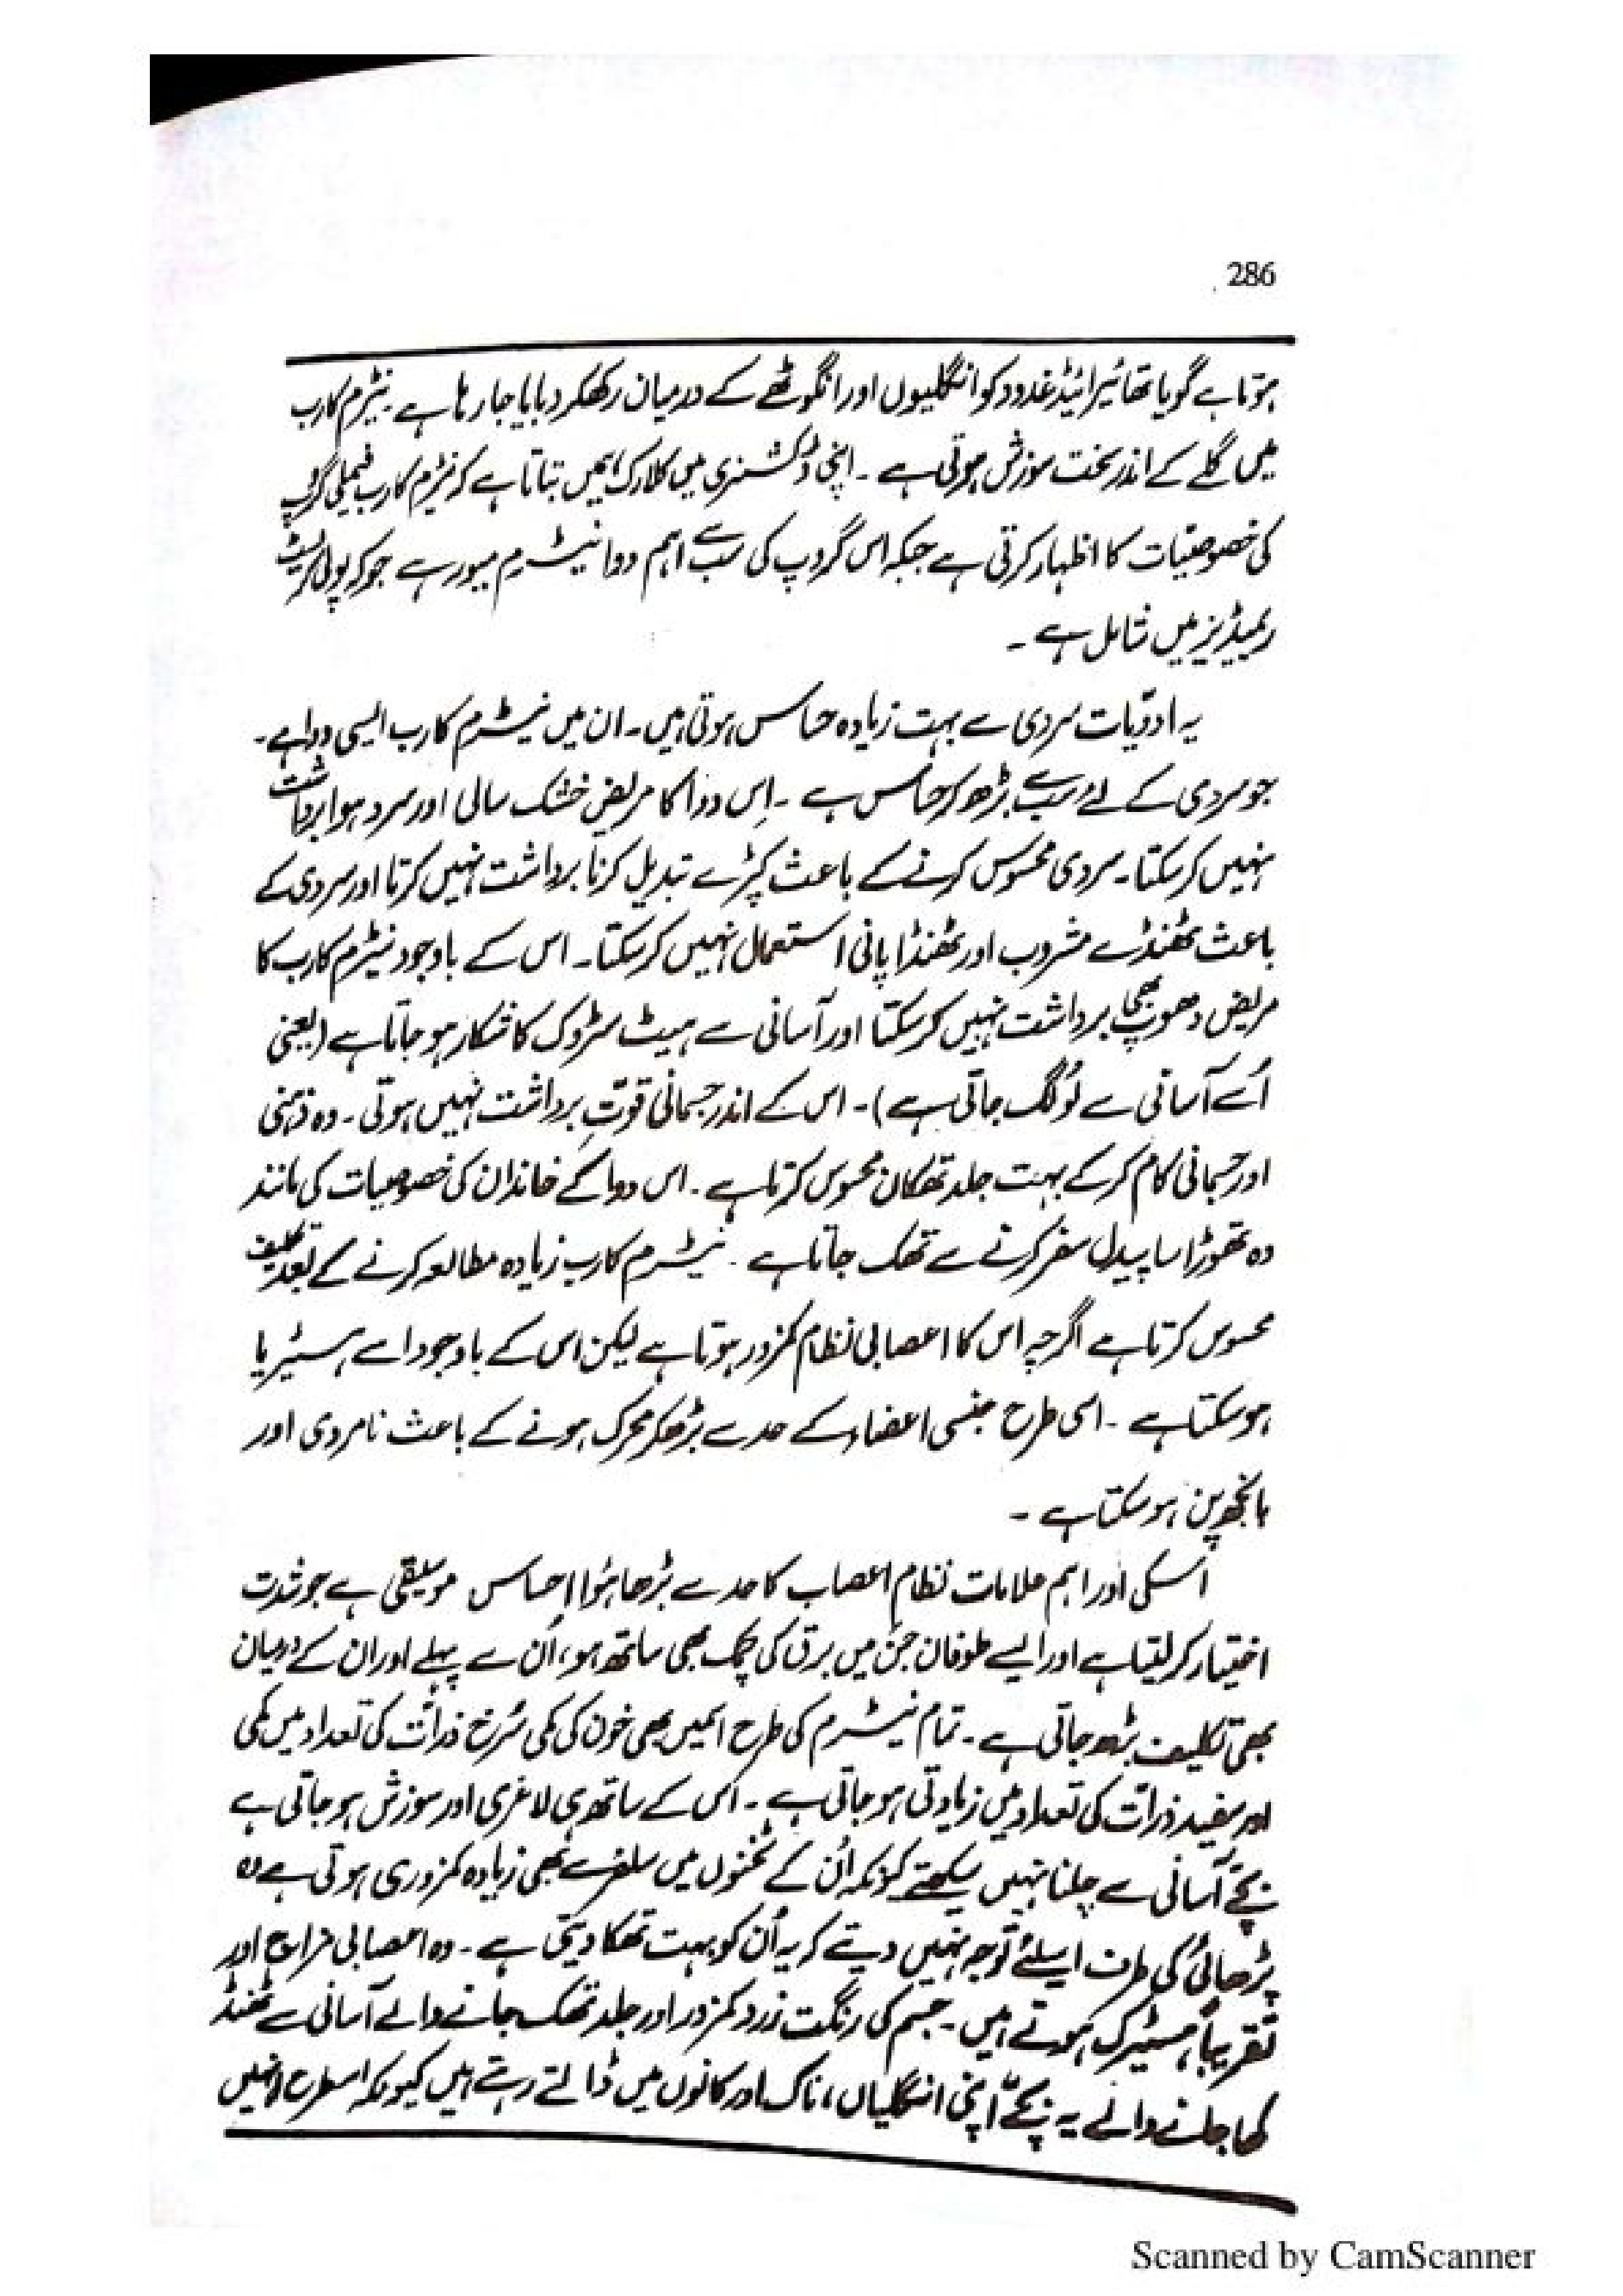 286
ہوتا ہے گویا تھائیرائیڈ غدود کو انگلیوں اور انگوٹھے کے درمیان رکھکر دبایا جا رہا ہے ۔ نیٹرم کارب
میں گلے کے اندر سخت سوزش ہوتی ہے ۔ اپنی ڈکشنری میں کلارک ہمیں بتاتا ہے کہ نیٹرم کارب فیملی گروپ
کی خصوصیات کا اظہار کرتی ہے جبکہ اس گروپ کی سب سے اہم دوا نیٹرم میور ہے جو کہ پولی کریسٹ
ریمیڈیز میں شامل ہے ۔
یہ ادویات سردی سے بہت زیادہ حساس ہوتی ہیں ۔ ان میں نیٹرم کارب ایسی دوا ہے ۔
جو سردی کے لئے سب سے بڑھ کر حساس ہے ۔ اِس دوا کا مریض خشک سالی اور سرد ہوا برداشت
نہیں کر سکتا ۔ سردی محسوس کرنے کے باعث کپڑے تبدیل کرنا برداشت نہیں کرتا اور سردی کے
باعث ٹھنڈے مشروب اور ٹھنڈا پانی استعمال نہیں کر سکتا ۔ اس کے باوجود نیٹرم کارب کا
مریض دھوپ بھی برداشت نہیں کر سکتا اور آسانی سے ہیٹ سٹروک کا شکار ہو جاتا ہے (یعنی
اُسے آسانی سے لُو لگ جاتی ہے) ۔ اس کے اندر جسمانی قوّتِ برداشت نہیں ہوتی ۔ وہ ذہنی
اور جسمانی کام کر کے بہت جلد تھکان محسوس کرتا ہے ۔ اس دوا کے خاندان کی خصوصیات کی مانند
وہ تھوڑا سا پیدل سفر کرنے سے تھک جاتا ہے ۔ نیٹرم کارب زیادہ مطالعہ کرنے کے بعد تکلیف
محسوس کرتا ہے اگرچہ اس کا اعصابی نظام کمزور ہوتا ہے لیکن اس کے باوجود اسے ہسٹیریا
ہو سکتا ہے ۔ اسی طرح جنسی اعضاء کے حد سے بڑھکر محرک ہونے کے باعث نامردی اور
بانجھ پن ہو سکتا ہے ۔
اسکی اور اہم علامات نظامِ اعصاب کا حد سے بڑھا ہُوا احساس موسیقی ہے جو شدت
اختیار کر لیتا ہے اور ایسے طوفان جن میں برق کی چمک بھی ساتھ ہو، اُن سے پہلے اور ان کے درمیان
بھی تکلیف بڑھ جاتی ہے ۔ تمام نیٹرم کی طرح اسمیں بھی خون کی کمی سُرخ ذراّت کی تعداد میں کمی
اور سفید ذراّت کی تعداد میں زیادتی ہو جاتی ہے ۔ اس کے ساتھ ہی لاغری اور سوزش ہو جاتی ہے
بچّے آسانی سے چلنا نہیں سیکھتے کیونکہ اُن کے ٹخنوں میں سلفر سے بھی زیادہ کمزوری ہوتی ہے وہ
پڑھائی کی طرف اسلئے توجہ نہیں دیتے کہ یہ اُن کو بہت تھکا دیتی ہے ۔ وہ اعصابی مزاج اور
تقریباً ہسٹیرک ہوتے ہیں ۔ جسم کی رنگت زرد کمزور اور جلد تھک جانے والے آسانی سے ٹھنڈ
کھا جانے والے یہ بچّے اپنی انگلیاں، ناک اور کانوں میں ڈالتے رہتے ہیں کیونکہ اسطرح انہیں
Scanned by CamScanner